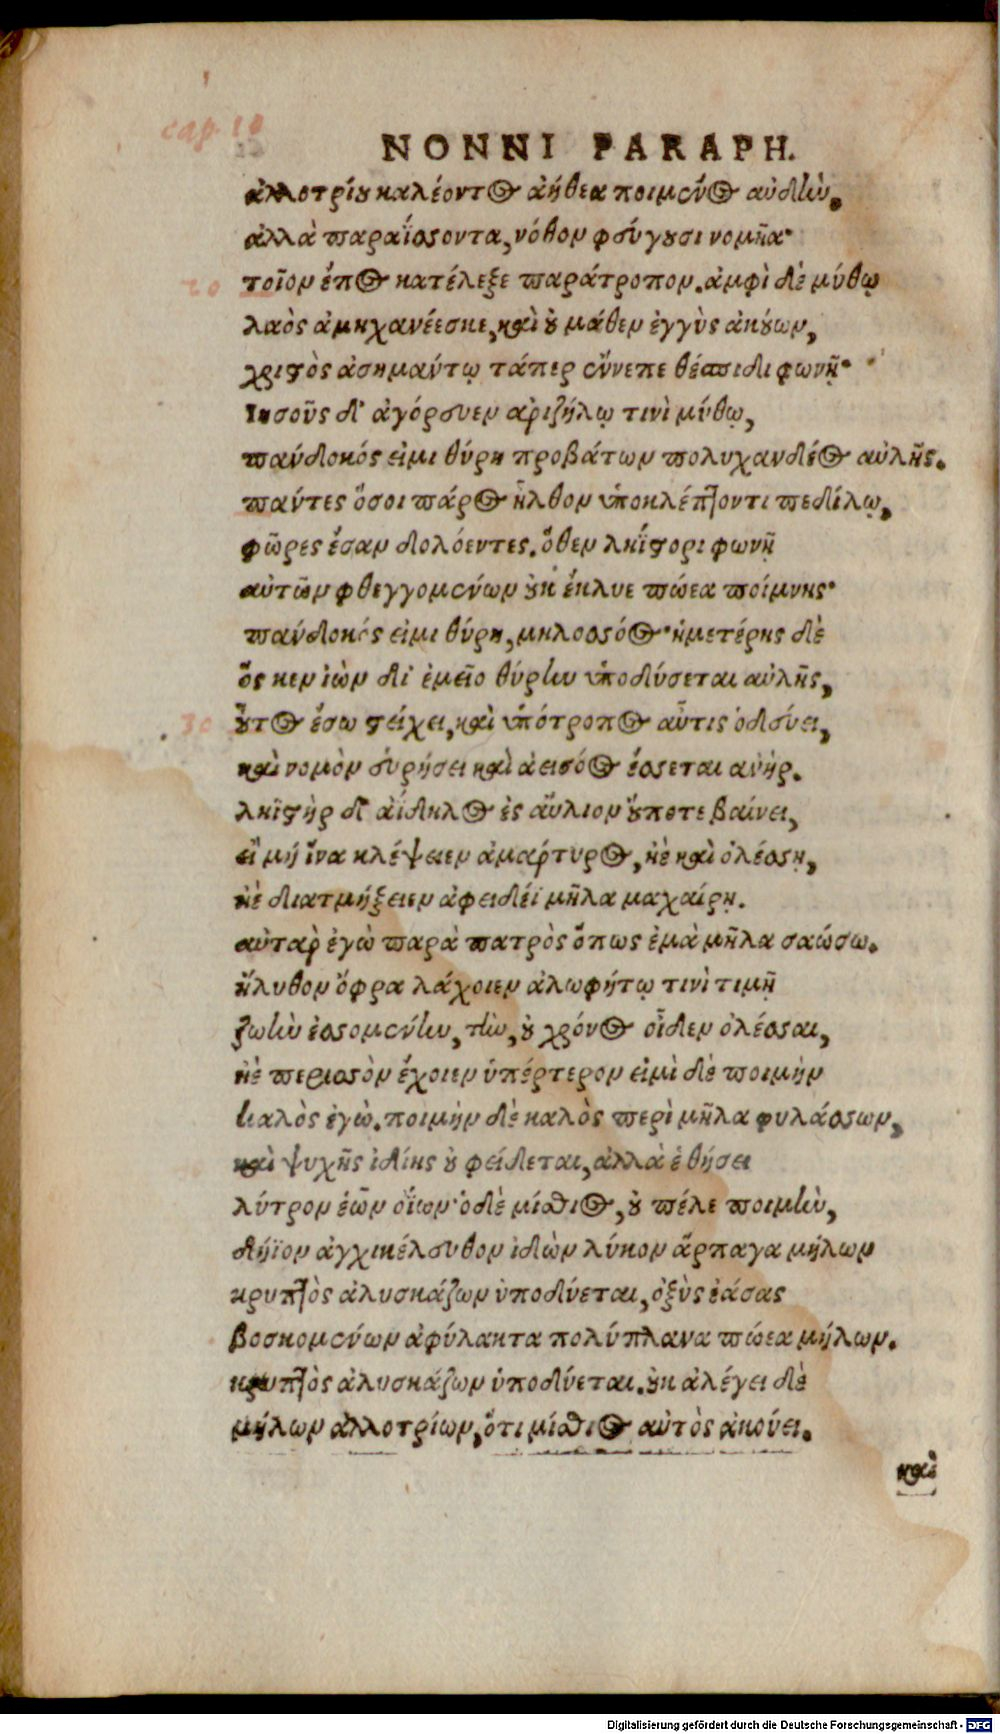 cap. 10
NONNI PARAPH.
ἀλλοτρίου καλέοντος ἀήθεα ποιμένος αὐδὴν.
ἀλλὰ παραΐσσοντα, νόθον φεύγουσι νομῆα·
20 τοῖον ἔπος κατέλεξε παράτροπον. ἀμφὶ δὲ μύθῳ
λαὸς ἀμηχανέεσκε, καὶ οὐ μάθεν ἐγγὺς ἀκούων,
χριστὸς ἀσημαύτῳ τάπερ ἔννεπε θέσπιδι φωνῇ·
Ιησοῦς δ' ἀγόρευεν ἀριζήλῳ τινὶ μύθῳ,
πάνδοκός εἰμι θύρη προβάτων πολυχανδέος αὐλῆς.
πάντες ὅσοι πάρος ἦλθον ὑποκλέπτοντι πεδίλῳ,
φῶρες ἔσαν δολόεντες. ὅθεν ληΐστορι φωνῇ
αὐτῶν φθεγγομένων οὐκ ἔκλυε πώεα ποίμνης·
πάνδοκός εἰμι θύρη, μηλοσσόος· ἡμετέρης δὲ
ὅς κεν ἰὼν δι' ἐμεῖο θύρην ὑποδύσεται αὐλῆς,
30 οὗτος ἔσω στείχει, καὶ ὑπότροπος αὖτις ὁδεύει,
καὶ νομὸν εὑρήσει καὶ ἀεισόος ἔσσεται ἀνήρ.
ληϊστὴρ δ' ἀΐδηλος ἐς αὔλιον οὔποτε βαίνει,
εἴ μή ἵνα κλέψειεν ἀμάρτυρος, ἠὲ καὶ ὀλέσσῃ,
ἠὲ διατμήξειεν ἀφειδέϊ μῆλα μαχαίρῃ.
αὐτὰρ ἐγὼ παρὰ πατρὸς ὅπως ἐμὰ μῆλα σαώσω.
ἤλυθον ὄφρα λάχοιεν ἀλωφήτῳ τινὶ τιμῇ
ζωὴν ἐσσομένην, τὴν, οὐ χρόνος οἶδεν ὀλέσσαι,
ἠὲ περισσὸν ἔχοιεν ὑπέρτερον εἰμὶ δὲ ποιμὴν
καλὸς ἐγὼ. ποιμὴν δὲ καλὸς περὶ μῆλα φυλάσσων,
καὶ ψυχῆς ἰδίης οὐ φείδεται, ἀλλὰ ἑ θήσει
λύτρον ἑῶν ὀΐων· ὁ δὲ μίσθιος, οὐ πέλε ποιμὴν,
δήϊον ἀγχικέλευθον ἰδὼν λύκον ἅρπαγα μήλων
κρυπτὸς ἀλυσκάζων ὑποδύεται, ὀξὺς ἐάσας
βοσκομένων ἀφύλακτα πολύπλανα πώεα μήλων.
κρυπτὸς ἀλυσκάζων ὑποδύεται. οὐκ ἀλέγει δὲ
μήλων ἀλλοτρίων, ὅτι μίσθιος αὐτὸς ἀκούει.
καὶ
Digitalisierung gefördert durch die Deutsche Forschungsgemeinschaft - DFG